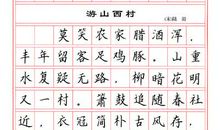 游山西村
(宋)陆 游
莫笑农家腊酒浑，
丰年留客足鸡豚。山重
水复疑无路，柳暗花明
又一村。箫鼓追随春社
近，衣冠简朴古风存。